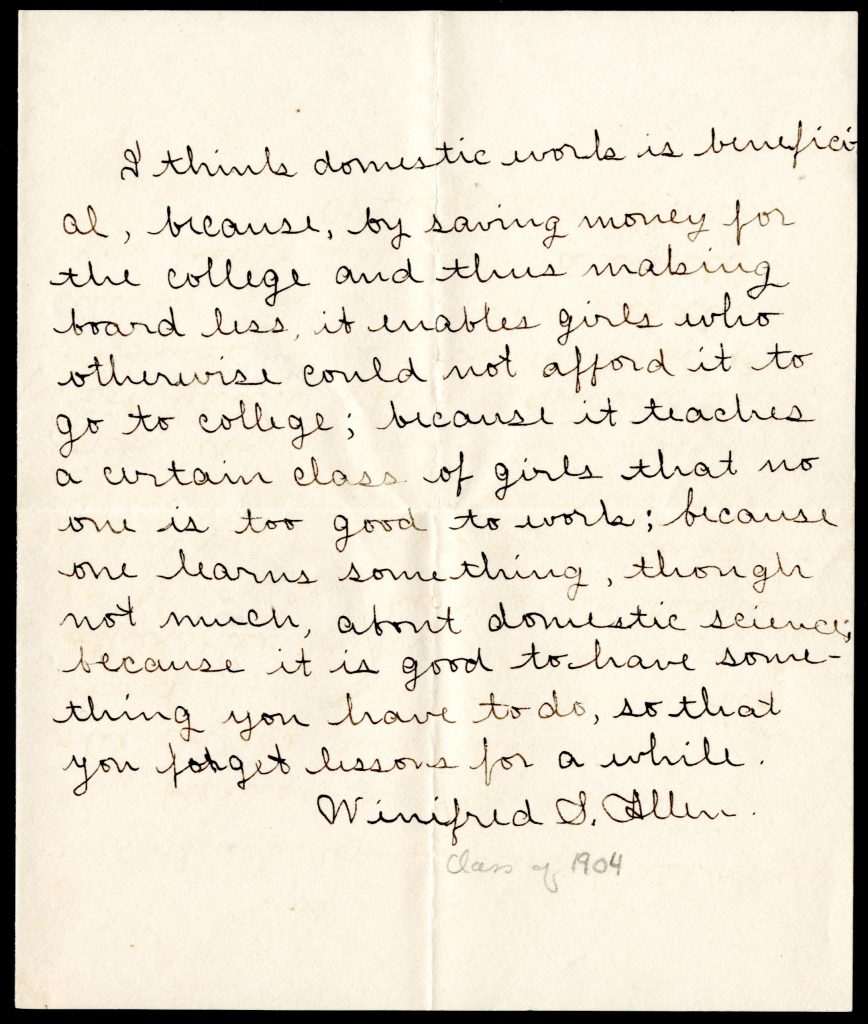 I think domestic work is benefici
al, because, by saving money for
the college and thus making
board less, it enables girls who
otherwise could not afford it to
go to college; because it teaches
a certain class of girls that no
one is too good to work; because
one learns something, though
not much, about domestic science;
because it is good to have some-
thing you have to do, so that
you forget lessons for a while.
Winifred S. Allen.
Class of 1904